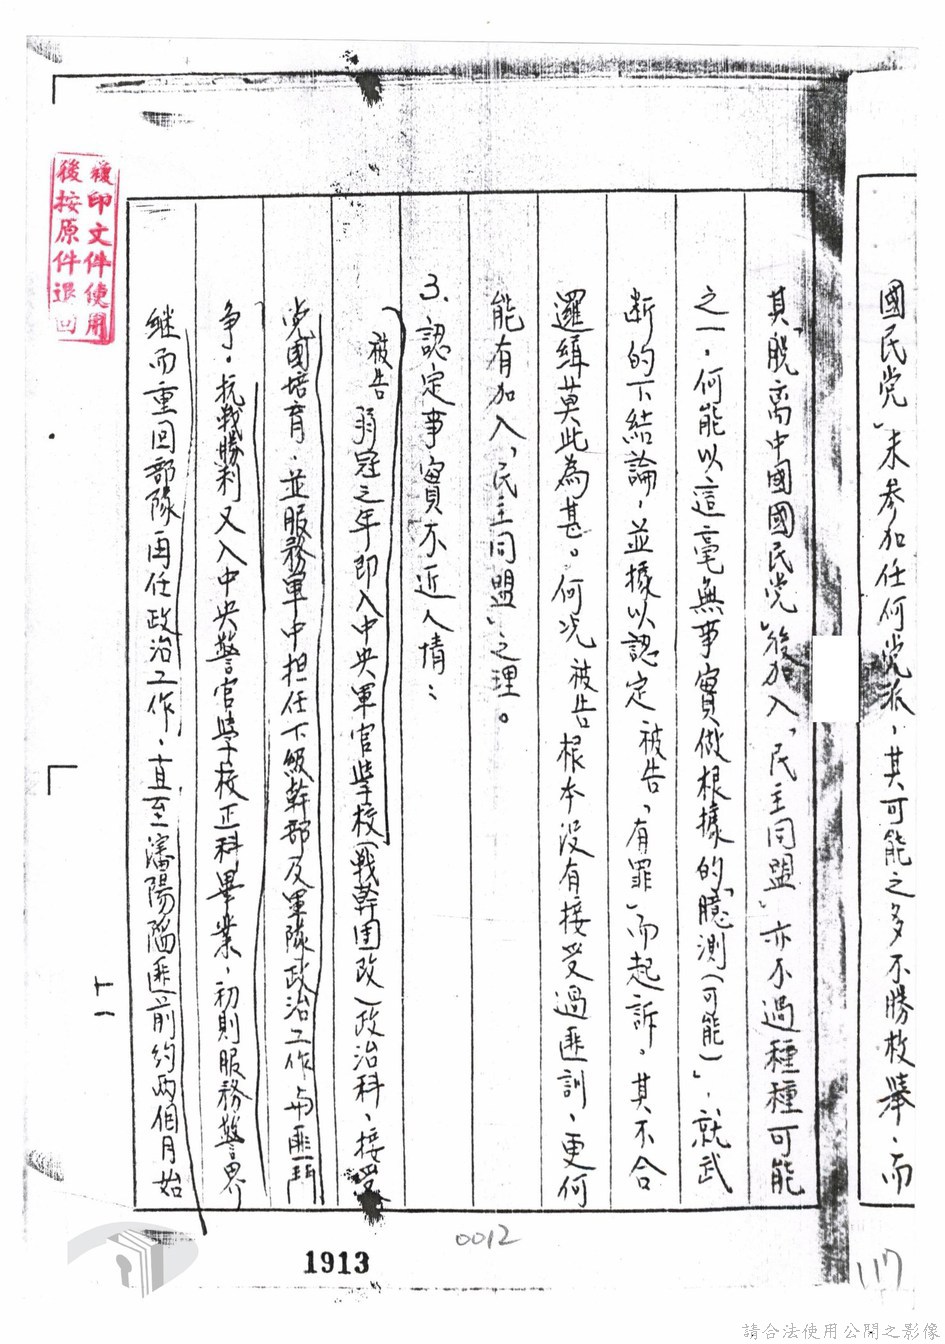 國民党」未參加任何党派，其可能之多不勝枚舉，而
其「脫离中國國民党」後加入「民主同盟」亦不過種種可能
之一，何能以這毫無事實做根據的「臆測(可能)」，就武
断的下結論，並據以認定被告「有罪」而起訴，其不合
邏緝莫此為甚。何况被告根本没有接受過匪訓，更何
能有加入「民主同盟」之理。
3、認定事實不近人情：
被告 弱冠之年即入中央軍官学校(戰幹团改)政治科，接受
党團培育，並服務軍中担任下級幹部及軍隊政治工作与匪鬥
争，抗戰勝利又入中央警官学校正科畢業，初則服務警界
继而重回部隊再任政治工作，直至瀋陽陷匪前約两個月始
十一
複印文件使用
後按原件退回
1913
0012
117
請合法使用公開之影像